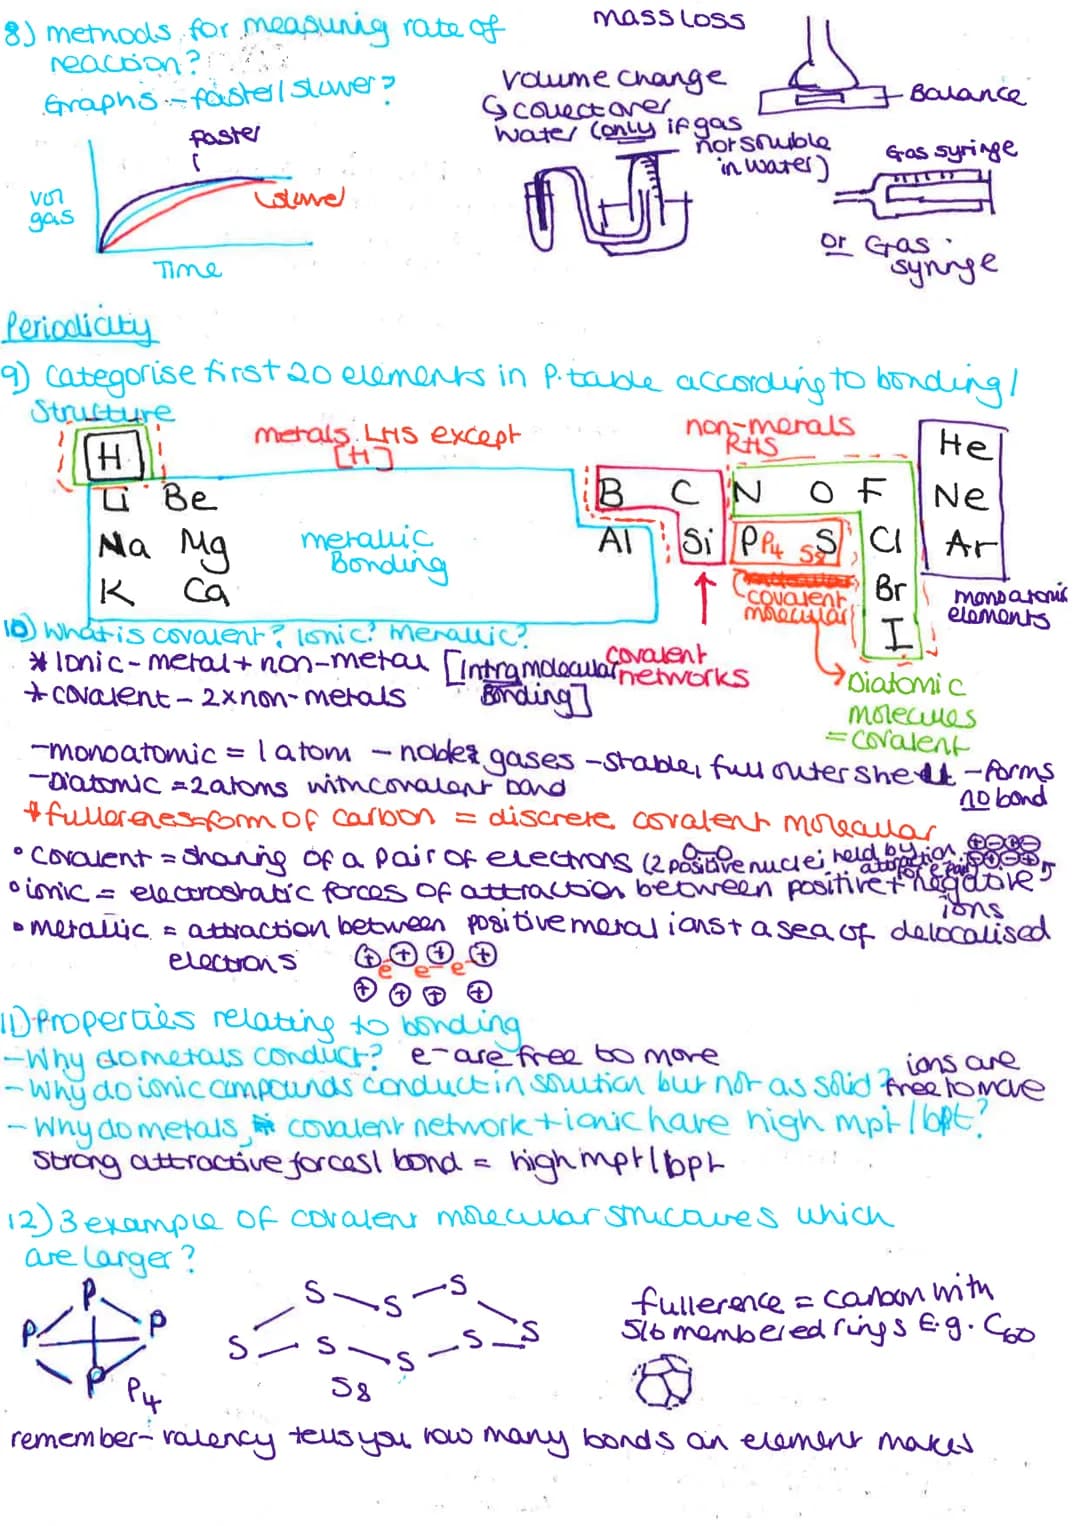 8) methods for measuring rate of
reaction?
Graphs - faster/slower?
faster
slower
vol
gas
Time
mass loss
Balance
volume change
↳ collect over
water (only if gas
not soluble
in water)
Gas syringe
or Gas
syringe
Periodicity
9) Categorise first 20 elements in P.table according to bonding/
structure
metals LHS except
[H]
non-metals
RHS
H
He
Li Be
B C N O F
Ne
Na Mg
metallic
Bonding
Al Si P P4 S8 S Cl
Ar
K Ca
covalent
molecular
Br
I
monoatomic
elements
covalent
networks
Diatomic
molecules
= covalent
10) What is covalent? Ionic? Metallic?
* Ionic - metal + non-metal [Intramolecular
* covalent - 2 x non-metals Bonding]
- monoatomic = 1 atom - nobel gases - stable, full outer shell - forms
no bond
- Diatomic = 2 atoms with covalent bond
* fullerenes = form of carbon = discrete covalent molecular
• covalent = sharing of a pair of electrons (2 positive nuclei held by attraction for e pair)
• ionic = electrostatic forces of attraction between positive + negative
ions
• metallic = attraction between positive metal ions + a sea of delocalised
electrons
e e- e-
11) Properties relating to bonding
- Why do metals conduct? e- are free to move
- Why do ionic compounds conduct in solution but not as solid? ions are
free to move
- Why do metals, covalent network + ionic have high mpt/bpt?
Strong attractive forces/bond = high mpt/bpt
12) 3 example of covalent molecular structures which
are larger?
P
P P
P
P4
S S S
S S
S S S
S8
fullerence = carbon with
5/6 membered rings E.g. C60
remember - valency tells you how many bonds an element makes